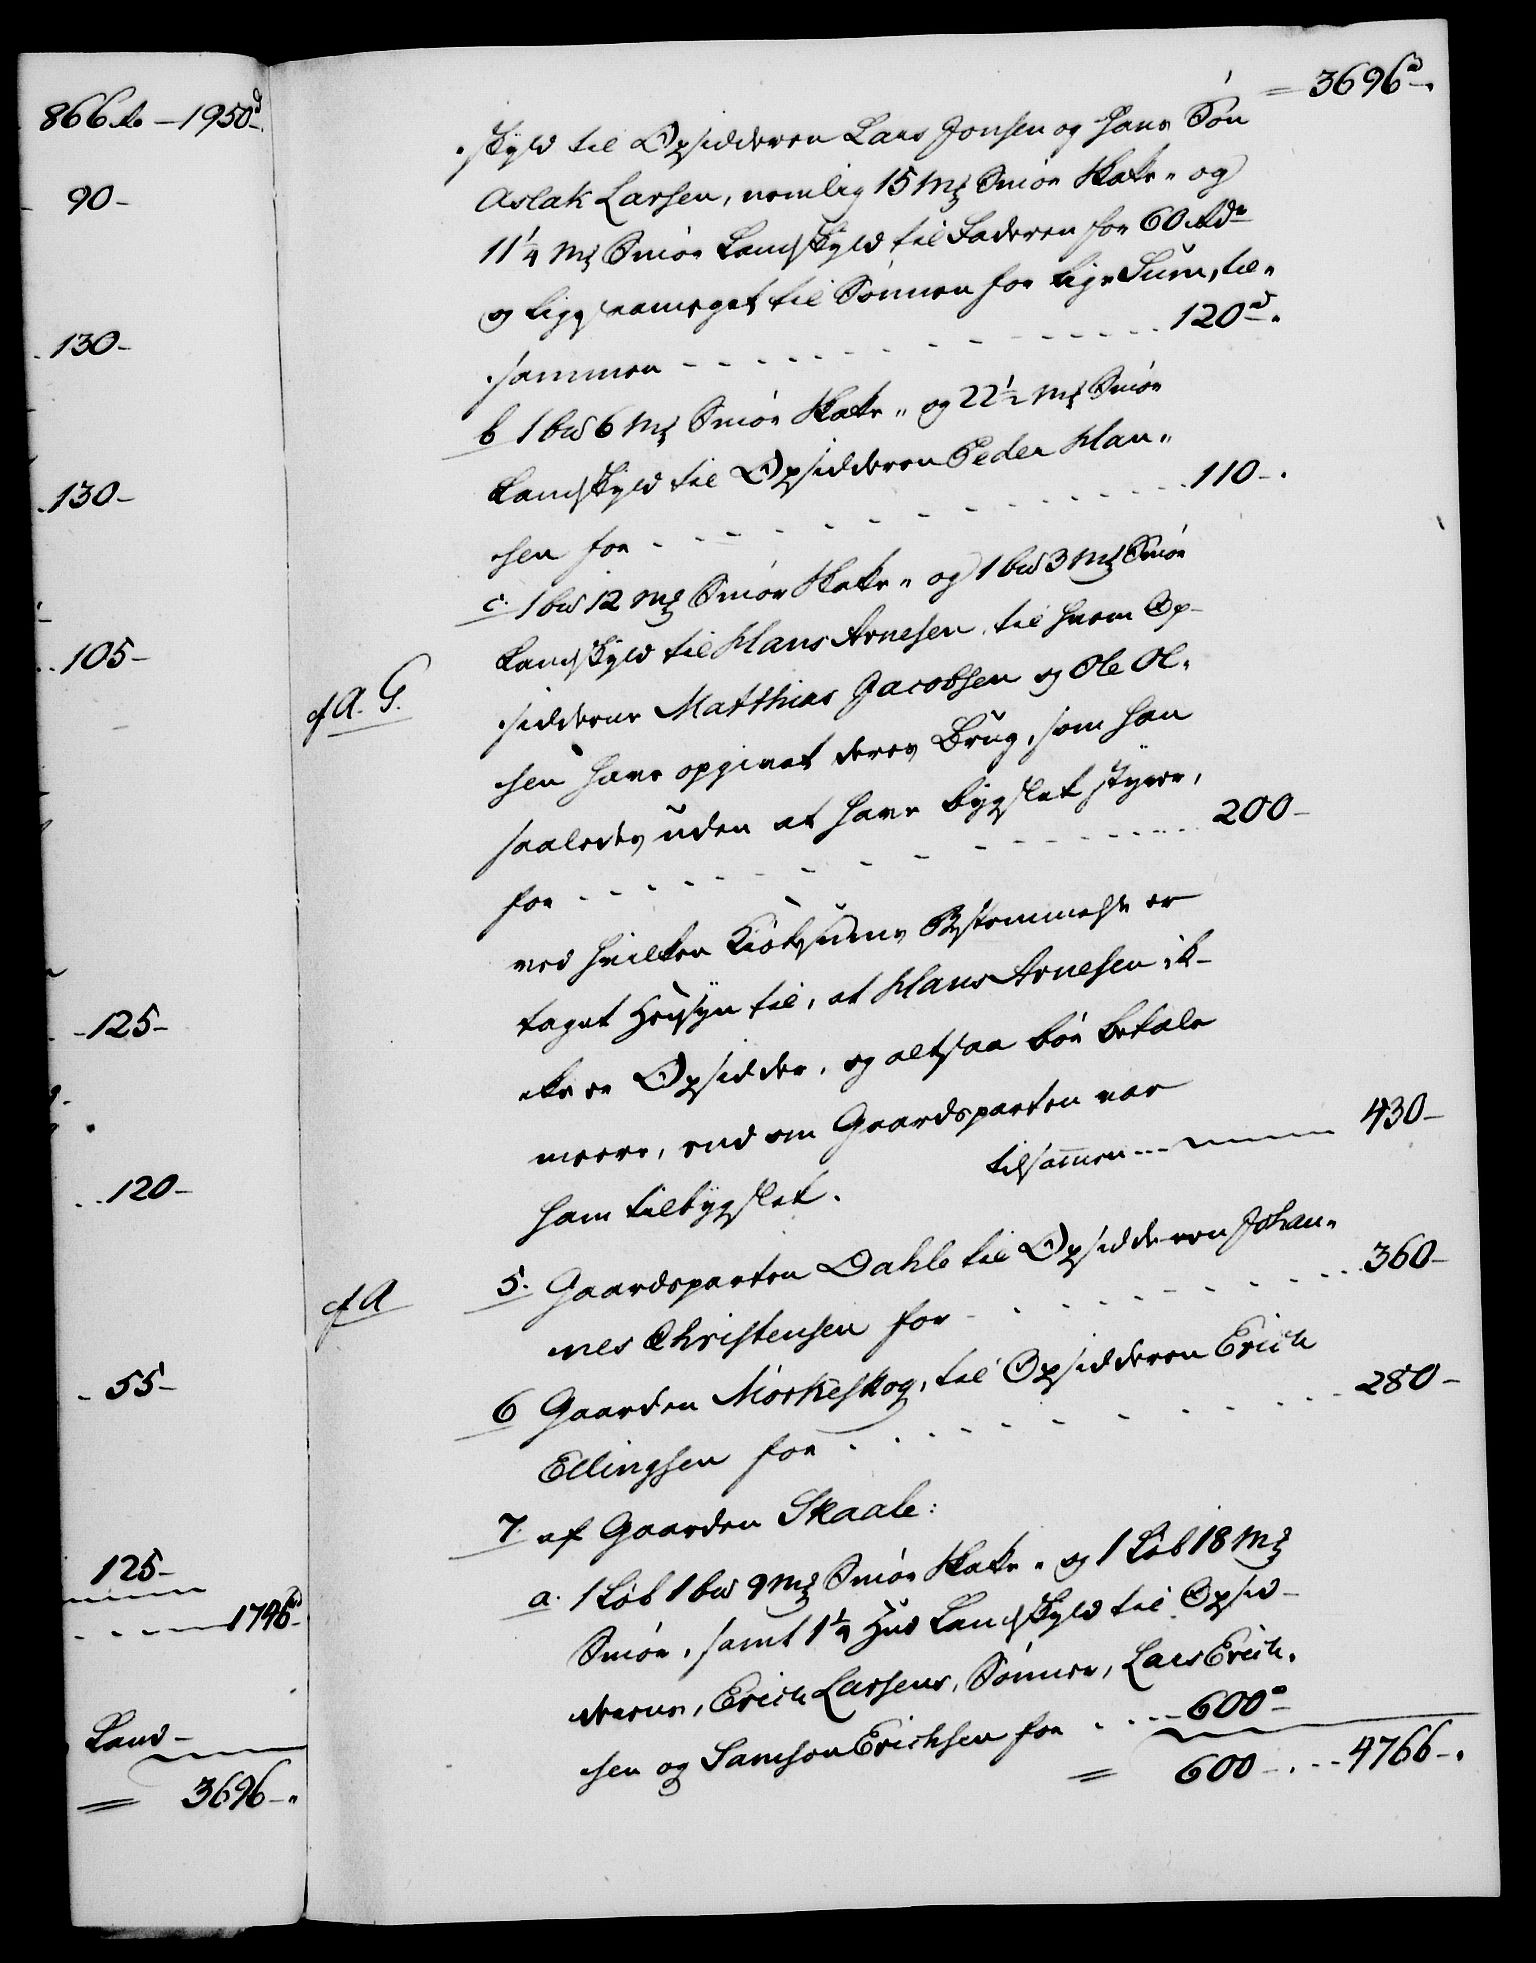 866 rd - 1950 rd
90 -
130 -
130 -
105 -
125 -
120 -
55 -
125 -
1746 rd
Land -
= 3696 -
= 3696 rd -
skyld til Opsidderen Lars Jonsen og hans Søn
Aslak Larsen, nemlig 15 Mk Smør Skatte- og
11 1/4 Mk Smør Landskyld til Faderen for 60 rdr
og ligesaameget til Sønnen for lige Sum, til-
sammen - - - 120 rd
b 1 bd 6 Mk Smør Skatte- og 22 1/2 Mk Smør
Landskyld til Opsidderen Peder Han-
sen for - - - 110 -
c. 1 bd 12 Mk Smør Skatte- og 1 bd 3 Mk Smør
Landskyld til Hans Arnesen, til hvem Op-
cf A. G.
sidderne Matthias Jacobsen og Ole Ol-
sen have opgivet deres Brug, som han
saaledes uden at have bygslet styrer,
for - - - 200 -
ved hvilken Kiøbesums Bestemmelse er
taget Hensyn til, at Hans Arnesen ik-
ke er Opsidder, og altsaa bør betale
meere, end om Gaardsparten var
ham tilbygslet. tilsammen - - - 430 -
cf A
5. Gaardsparten Dahle til Opsidderen Johan-
nes Christensen for - - - 360 -
6 Gaarden Mørkeskog, til Opsidderen Erich
Ellingsen for - - - 280 -
7. af Gaarden Skaale:
a. 1 Løb 1 bd 9 Mk Smør Skatte- og 1 Løb 18 Mk
Smør, samt 1 1/4 Hud Landskyld til Opsid-
derne, Erich Larsens, Sønner, Lars Erich-
sen og Samson Erichsen for - - - 600 rd
= 600 - - - 4766 -